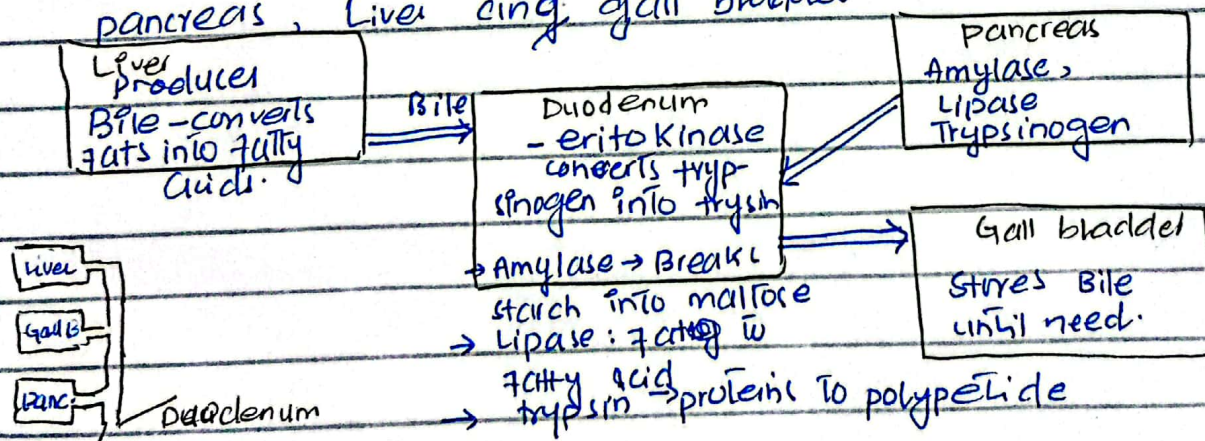 pancreas, Liver cing gall bladder
Liver
produces
Bile - converts
fats into fatty
acids.
Bile
Duodenum
- eritokinase
converts tryp-
sinogen into trysin
→ Amylase → Breaks
starch into maltose
→ Lipase : fats to
fatty acid
→ trypsin → proteins to polypetide
pancreas
Amylase,
Lipase
Trypsinogen
Gall bladder
Stores Bile
until need.
Liver
Gall B
panc.
Duodenum